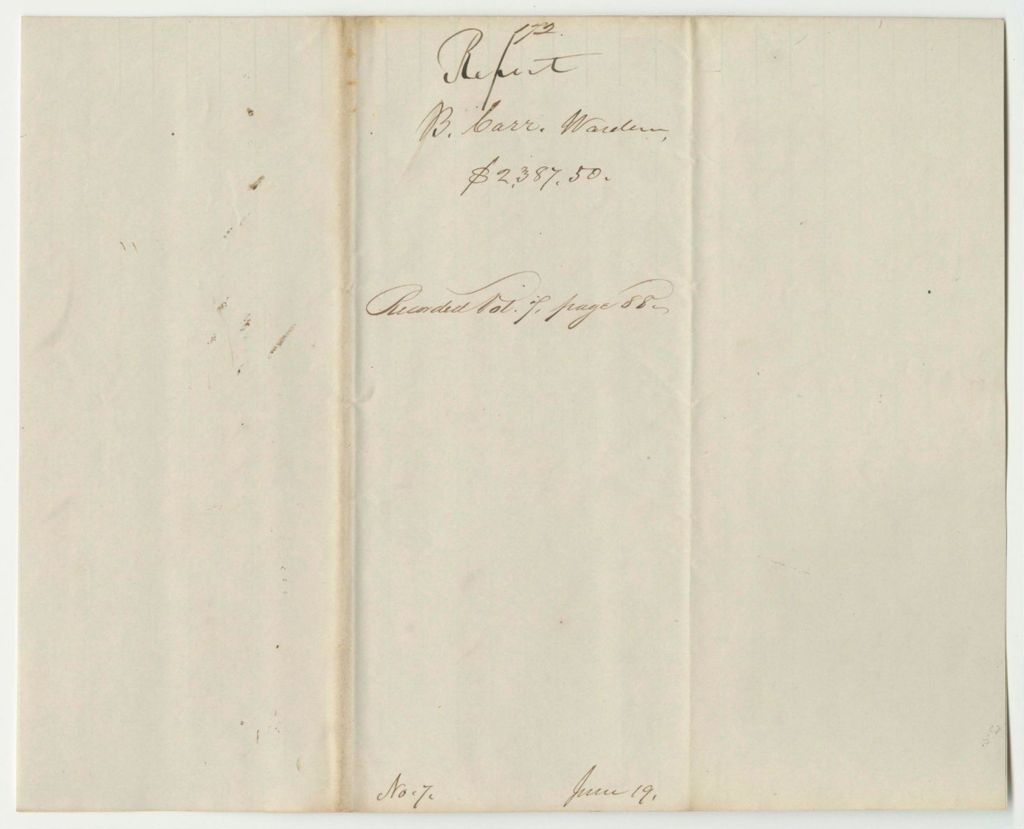 172
Report
B. Carr. Warden,
$2,387.50.
Recorded Vol. 7, page 88.
No. 7. June 19.